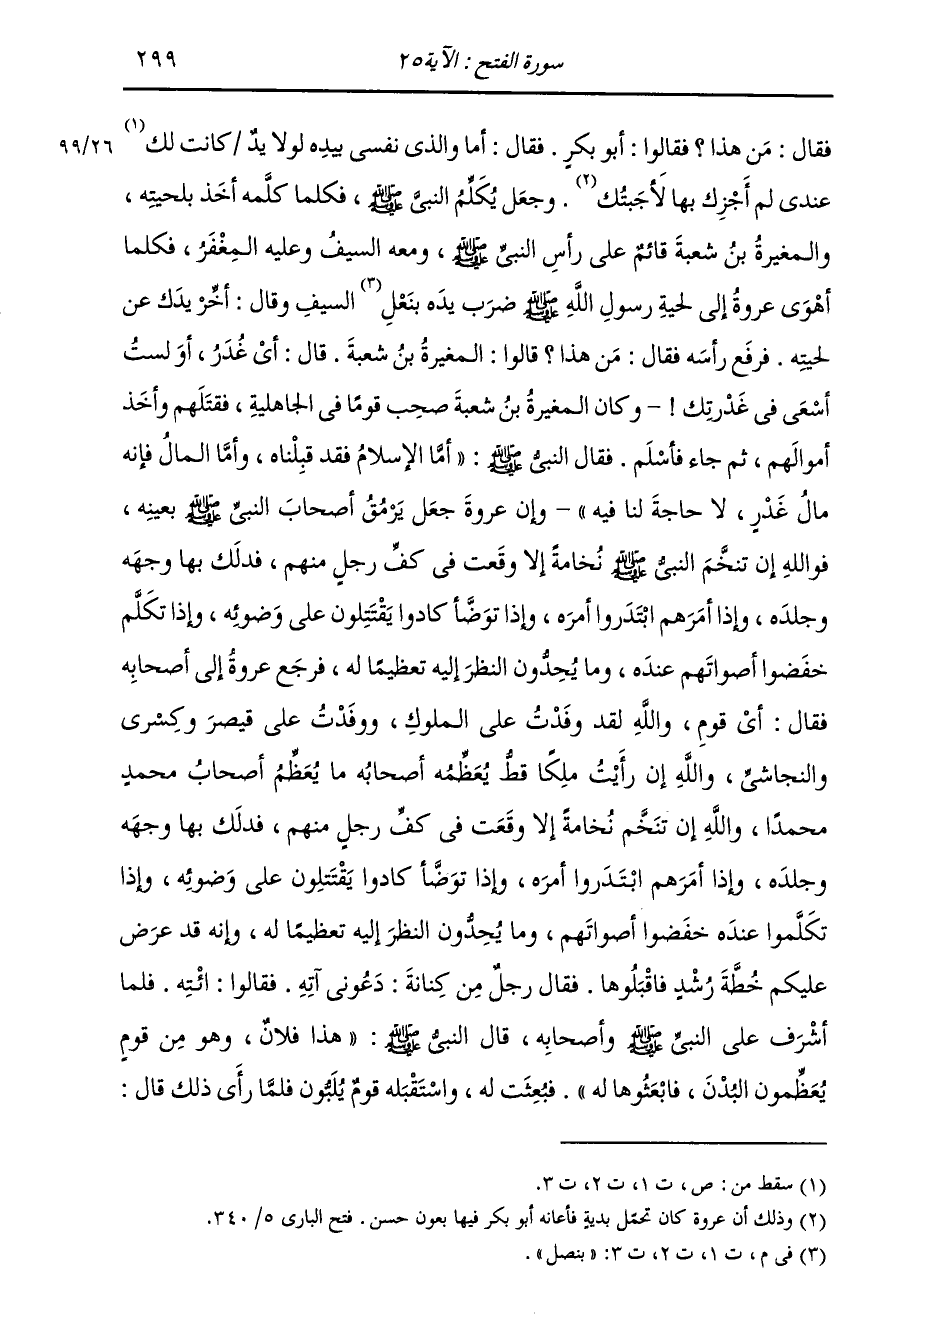 سورة الفتح : الآية ٢٥ ٢٩٩
فقال : مَن هذا ؟ فقالوا : أبو بكرٍ . فقال : أما والذى نفسى بيدِه لولا يدٌ / كانت لك(١) ٩٩/٢٦
عندى لم أَجْزِك بها لأَجَبتُك(٢) . وجعَل يُكَلِّمُ النبىَّ ﷺ ، فكلما كلَّمه أخَذ بلحيتِه ،
والمغيرةُ بنُ شعبةَ قائمٌ على رأسِ النبىِّ ﷺ ، ومعه السيفُ وعليه المِغْفَرُ ، فكلما
أهْوَى عروةُ إلى لحيةِ رسولِ اللَّهِ ﷺ ضرَب يدَه بنَعْلِ(٣) السيفِ وقال : أخِّرْ يدَك عن
لحيتِه . فرفَع رأسَه فقال : مَن هذا ؟ قالوا : المغيرةُ بنُ شعبةَ . قال : أىْ غُدَرُ ، أوَ لستُ
أسْعَى فى غَدْرتِك ! – وكان المغيرةُ بنُ شعبةَ صحِب قومًا فى الجاهليةِ ، فقتَلَهم وأخَذ
أموالَهم ، ثم جاء فأسْلَم . فقال النبىُّ ﷺ : « أمَّا الإسلامُ فقد قبِلْناه ، وأمَّا المالُ فإنه
مالُ غَدْرٍ ، لا حاجةَ لنا فيه » – وإن عروةَ جعَل يَرْمُقُ أصحابَ النبىِّ ﷺ بعينِه ،
فواللهِ إن تنخَّمَ النبىُّ ﷺ نُخامةً إلا وقَعت فى كفِّ رجلٍ منهم ، فدلَك بها وجهَه
وجلدَه ، وإذا أمَرَهم ابْتَدَروا أمرَه ، وإذا توَضَّأ كادوا يَقْتَتِلون على وَضوئِه ، وإذا تكَلَّم
خفَضوا أصواتَهم عندَه ، وما يُحِدُّون النظرَ إليه تعظيمًا له ، فرجَع عروةُ إلى أصحابِه
فقال : أىْ قومِ ، واللَّهِ لقد وفَدْتُ على الملوكِ ، ووفَدْتُ على قيصرَ وكِسْرى
والنجاشىِّ ، واللَّهِ إن رأَيْتُ ملِكًا قطُّ يُعَظِّمُه أصحابُه ما يُعَظِّمُ أصحابُ محمدٍ
محمدًا ، واللَّهِ إن تنَخَّم نُخامةً إلا وقَعَت فى كفِّ رجلٍ منهم ، فدلَك بها وجهَه
وجلدَه ، وإذا أمَرَهم ابْتَدَروا أمرَه ، وإذا توَضَّأ كادوا يَقْتَتِلون على وَضوئِه ، وإذا
تكَلَّموا عندَه خفَضوا أصواتَهم ، وما يُحِدُّون النظرَ إليه تعظيمًا له ، وإنه قد عرَض
عليكم خُطَّةَ رُشْدٍ فاقْبَلُوها . فقال رجلٌ مِن كِنانةَ : دَعُونى آتِهِ . فقالوا : ائْتِه . فلما
أشْرَف على النبىِّ ﷺ وأصحابِه ، قال النبىُّ ﷺ : « هذا فلانٌ ، وهو مِن قومٍ
يُعَظِّمون البُدْنَ ، فابْعَثُوها له » . فبُعِثَت له ، واسْتَقْبَله قومٌ يُلَبُّون فلمَّا رأَى ذلك قال :
(١) سقط من : ص ، ت ١، ت ٢، ت ٣.
(٢) وذلك أن عروة كان تحمّل بدية فأعانه أبو بكر فيها بعون حسن . فتح البارى ٥/ ٣٤٠.
(٣) فى م ، ت ١، ت ٢، ت ٣: « بنصل » .